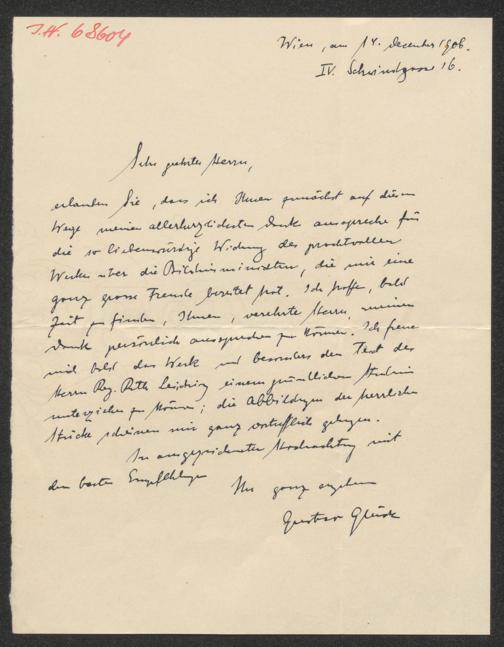 I.N. 68604
Wien, am 14. December 1906.
IV. Schwindgasse 16.
Sehr geehrter Herr,
erlauben Sie, dass ich Ihnen zunächst auf diesem
Wege meinen allerherzlichsten Dank ausspreche für
die so liebenswürdige Widmung des prachtvollen
Werkes über die Bildnisminiaturen, die mir eine
ganz grosse Freude bereitet hat. Ich hoffe, bald
Zeit zu finden, Ihnen, verehrter Herr, meinen
Dank persönlich aussprechen zu können. Ich freue
mich bald das Werk und besonders den Text des
Herrn Reg. Rath Leisching einem gründlichen Studium
unterziehen zu können; die Abbildungen der herrlichen
Stücke scheinen mir ganz vortrefflich gelungen.
In ausgezeichneter Hochachtung mit
den besten Empfehlungen
Ihr ganz ergebener
Gustav Glück